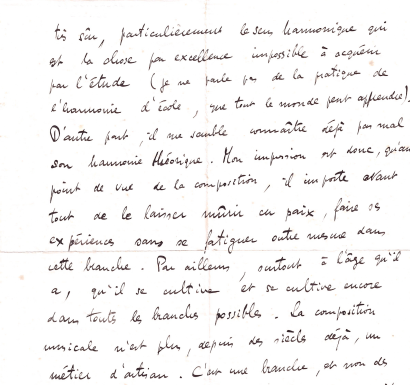 très sûr, particulièrement le sens harmonique qui
est la chose par excellence impossible à acquérir
par l'étude (je ne parle pas de la pratique de
l'harmonie d'école, que tout le monde peut apprendre).
D'autre part, il me semble connaître déjà pas mal
son harmonie théorique. Mon impression est donc, qu'au
point de vue de la composition, il importe avant
tout de le laisser mûrir en paix, faire ses
expériences sans se fatiguer outre mesure dans
cette branche. Par ailleurs, surtout à l'âge qu'il
a, qu'il se cultive et se cultive encore
dans toutes les branches possibles. La composition
musicale n'est plus, depuis des siècles déjà, un
métier d'artisan. C'est une branche, et non des